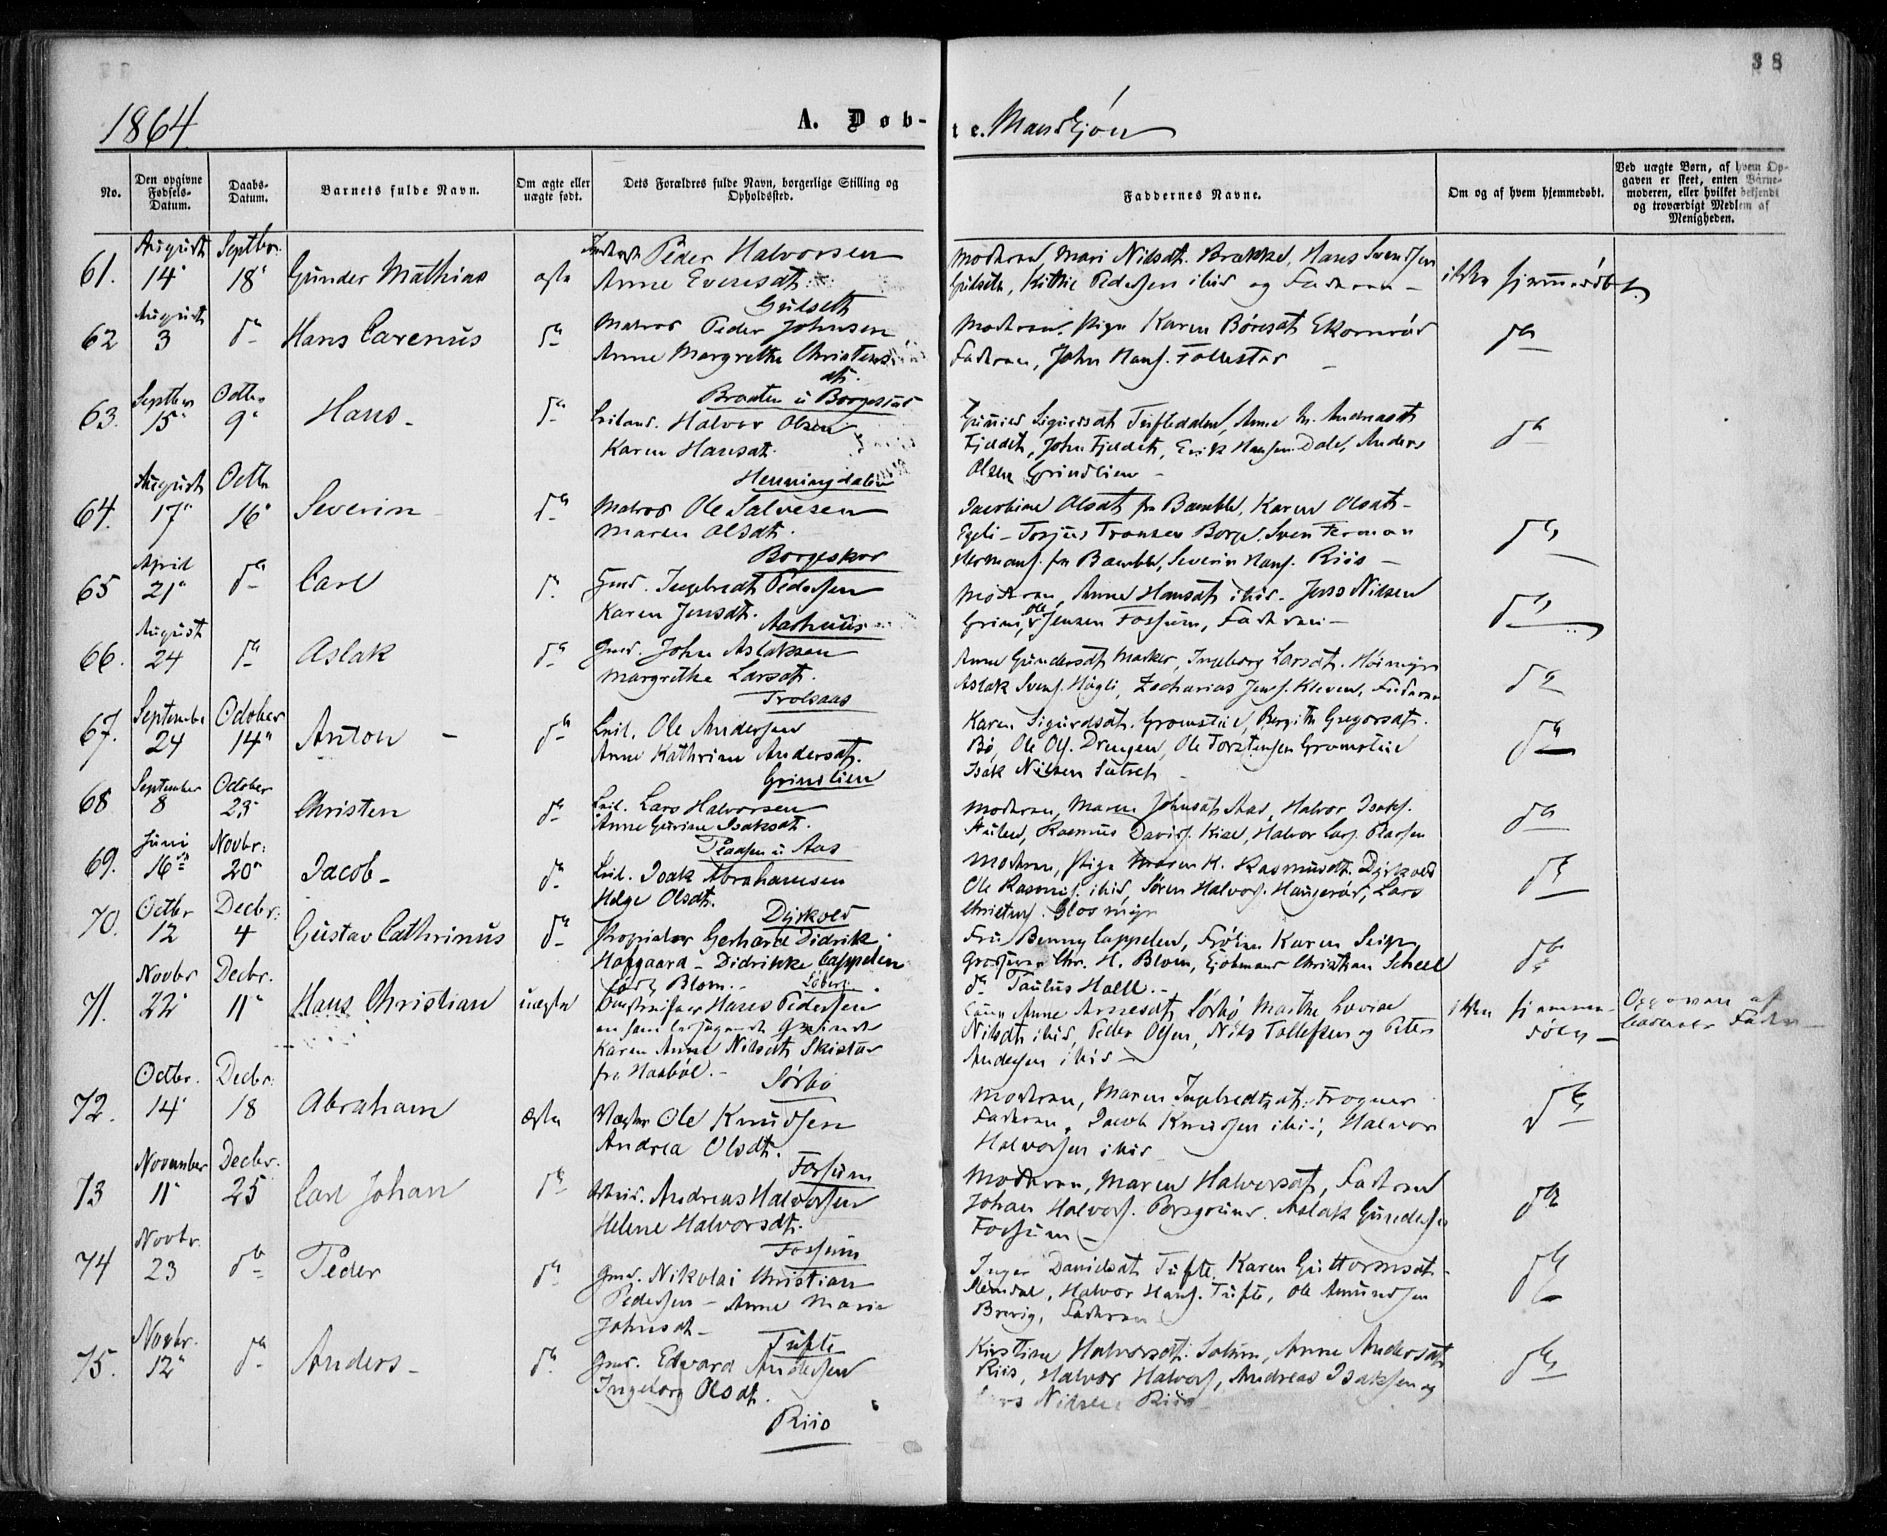 38
1864
A. Døb-
te. Mandkjøn
No.
Den opgivne Fødsels-Datum.
Daabs-Datum.
Barnets fulde Navn.
Om ægte eller uægte født.
Dets Forældres fulde Navn, borgerlige Stilling og Opholdssted.
Faddernes Navne.
Om og af hvem hjemmedøbt.
Ved uægte Børn, af hvem Opgaven er skeet, enten Barnemoderen, eller hvilket bekjendt og troværdigt Medlem af Menigheden.
61. August 14 Septbr. 18 Gunder Mathias ægte Peder Halvorsen
Anne Evensdt.
Gulseth
Moderen, Mari Nilsdt. Brække, Hans Svendsen
Gulseth, Kittil Pedersen ibid og Faderen
ikke hjemmedøbt.
62 August 3 do Hans Carenus do Matros Peder Johnsen
Anne Margrethe Christensdt.
Braaten u Borgestad
Moderen, Pige Karen Børesdt Ekornrød
Faderen, John Hans. Follestad
do
63. Septber 15 Octbr 9 Hans do Halvor Olsen
Karen Hansdt.
Henningdalen
Gunild Sigurdsdt Tuftedalen, Anne M. Andersdt
Fjeldet, John Fjeldet, Erik Hansen Dale, Anders
Olsen Grindlien
do
64. August 17 Octbr 16 Severin do Matros Ole Salvesen
Maren Olsdt.
Borgeskov
Jacobine Olsdt fra Bamble, Karen Olsdt
Torjus Fransen Borge, Sven Herman
Hermans. fra Bamble, Severin Hans. Riis
do
65 April 21 do Carl do Gmd. Ingebredt Pedersen
Karen Jensdt.
Aarhuus
Moderen, Anne Hansdt ibid. Jens Nilsen
Grini, Ole Jensen Fossum, Faderen
do
66. August 24 do Aslak do Gmd. John Aslaksen
Margrethe Larsdt.
Trolsaas
Anne Gundersdt Marker, Ingeborg Larsdt. Høimyr
Aslak Svens. Høgli, Zacharias Jens. Kleven, Faderen
do
67. September 24 October 14 Anton do Ole Andersen
Anne Kathrine Andersdt.
Grinilien
Karen Sigurdsdt. Gromstul, Bergith Gregorsdt.
Bø, Ole Ols. Drengen, Ole Torstensen Gromstul
Isak Nilsen
do
68 September 8 October 23 Christen do Lars Halvorsen
Anne Gurine Isaksdt.
Pladsen u Aas
Moderen, Maren Johnsdt Aas, Halvor Isaks.
Rasmus Davids. Halvor Lars. Pladsen
do
69. Juni 16 Novbr. 20 Jacob do Isak Abrahamsen
Helge Olsdt.
Dyrkold
Moderen, Pige Maren K. Rasmusdt. Dyrkold
Ole Rasmus. ibid, Søren Halvors. Haugerød, Lars
Christens. Glosmyr
do
70. Octbr 12 Decbr. 4 Gustav Cathrinus do Proprietær Gerhard Didrik
Hofgaard - Didrikke Cappelen
Blom.
Fru Benny Cappelen, Frøken Karen
Chr. H. Blom, Kjøbmand Christian Scheel
do Paulus Hall.
do
71. Novbr 22 Decbr. 11 Hans Christian uægte Hans Pedersen
Karen Anne Nilsdt Skistad
fra
Sørbø
Anne Arnesdt Sørbø Marthe Lovise
Nilsdt ibid, Peder Olsen, Nils Tollefsen og Peter
Andersen ibid
ikke hjemmedøbt
Opgaven af
Fader
72. Octbr. 14 Decbr. 18 Abraham ægte Ole Knudsen
Andrea Olsdt.
Fossum
Moderen, Maren Ingebretsdt. Frogner
Faderen, Jacob Knudsen ibid, Halvor
Halvorsen ibid
do
73 November 11 Decbr. 25 Carl Johan do Arbeid. Andreas Halvorsen
Helene Halvorsdt.
Fossum
Moderen, Maren Halvorsdt, Faderen
Johan Halvors. Porsgrund. Aslak Gunders.
Fossum
do
74 Novbr. 23 do Peder do Gmd. Nikolai Christian
Pedersen - Anne Marie
Johnsdt
Tufte
Inger Davidsdt Tufte, Karen Guttormsdt
Halvor Hans. Tufte, Ole Amundsen
Brevig, Faderen
do
75. Novbr. 12 do Anders do Gmd. Edvard Andersen
Ingeborg Olsdt.
Riis
Kirstine Halvorsdt. Solum, Anne Andersdt
Riis, Halvor Halvors, Andreas Isaksen og
Nilsen Riis
do